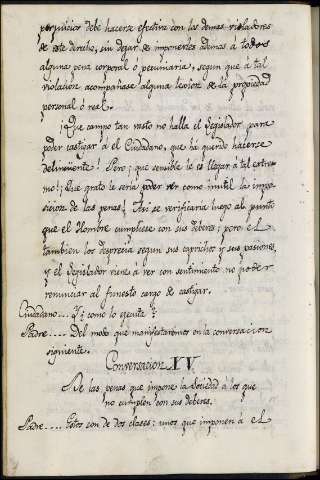 perjuicios debe hacerse efectiva con los demas violadores
de este derecho, sin dejar de imponerles ademas á todos
alguna pena corporal ó pecuniaria, segun que á tal
violacion acompañase alguna lesion de la propiedad
personal ó real.
¡Que campo tan vasto no halla el Legislador para
poder castigar á el Ciudadano, que ha querido hacerse
delincuente! Pero ¡que sensible le es llegar á tal extre-
mo! ¡Que grato le seria poder ver como inutil la impo-
sicion de las penas! Asi se verificaria luego al punto
que el Hombre cumpliese con sus deberes; pero el
tambien los desprecia segun sus caprichos y sus pasiones,
y el Legislador viene á ver con sentimiento no poder
renunciar al funesto cargo de castigar.
Ciudadano.... Y ¿como lo ejecuta?
Padre.... Del modo que manifestaremos en la conversacion
siguiente.
Conversacion XV.
De las penas que impone la Sociedad á los que
no cumplen con sus deberes.
Padre.... Estos son de dos clases: unos que imponen á el